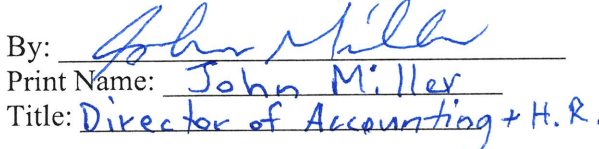 By: John Miller
Print Name: John Miller
Title: Director of Accounting + H.R.